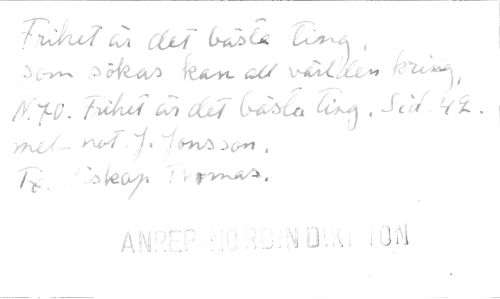 Frihet är det bästa ting,
som sökas kan all världen kring,
N. 70. Frihet är det bästa ting. Sid. 42.
mel- not. J. Jonsson.
Tx. Biskop Thomas.
ANREP-NORDIN DIKT TON